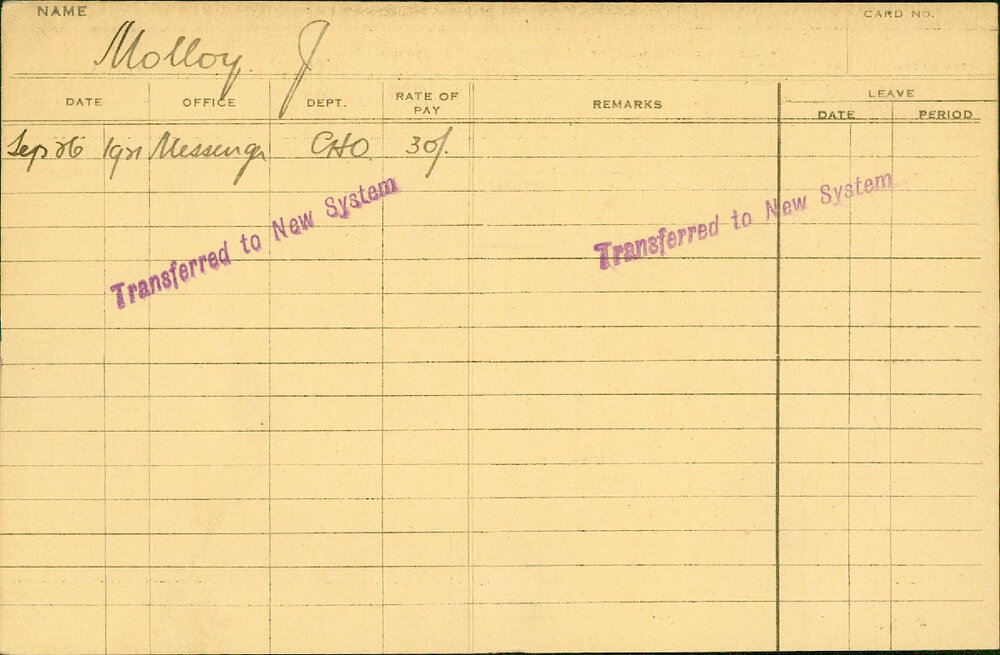 NAME CARD NO.
Molloy J
DATE OFFICE DEPT. RATE OF PAY REMARKS LEAVE
DATE PERIOD
Sep 26 1921 Messenger CHO 30/.
Transferred to New System
Transferred to New System